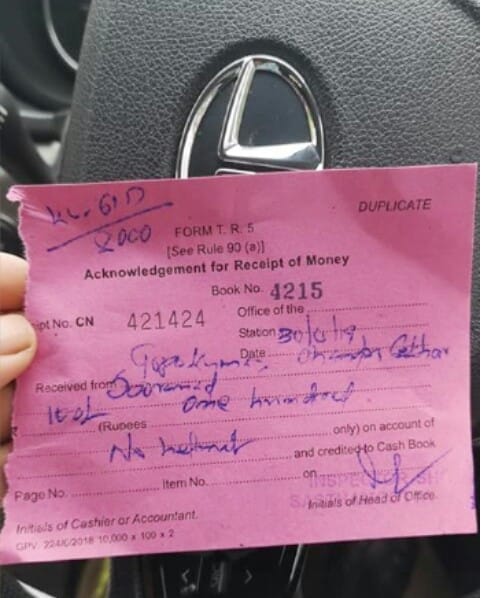 DUPLICATE
KL. 61 D
2000
FORM T. R. 5
[See Rule 90 (a)]
Acknowledgement for Receipt of Money
Book No. 4215
ipt No. CN 421424
Office of the
Station
Date
Received from
100/- (Rupees one hundred only) on account of
No helmet and credited to Cash Book
Page No. Item No. on
INSPECTOR SH
Initials of Cashier or Accountant.
Initials of Head of Office.
GPV. 224/6/2018 10,000 × 100 × 2